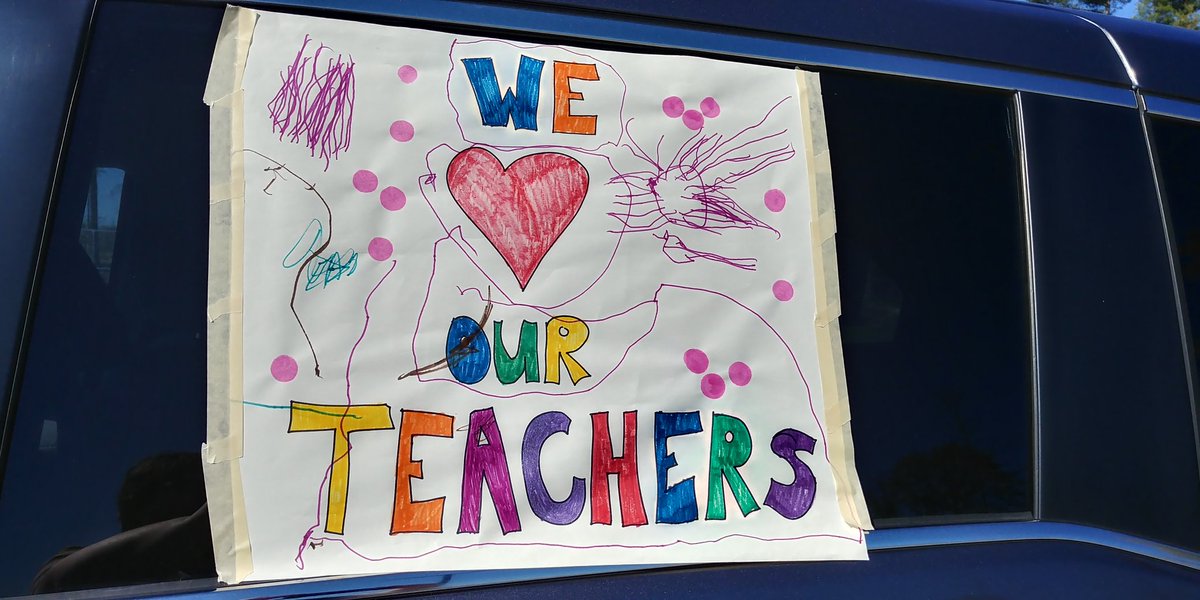 WE
❤
OUR
TEACHERS